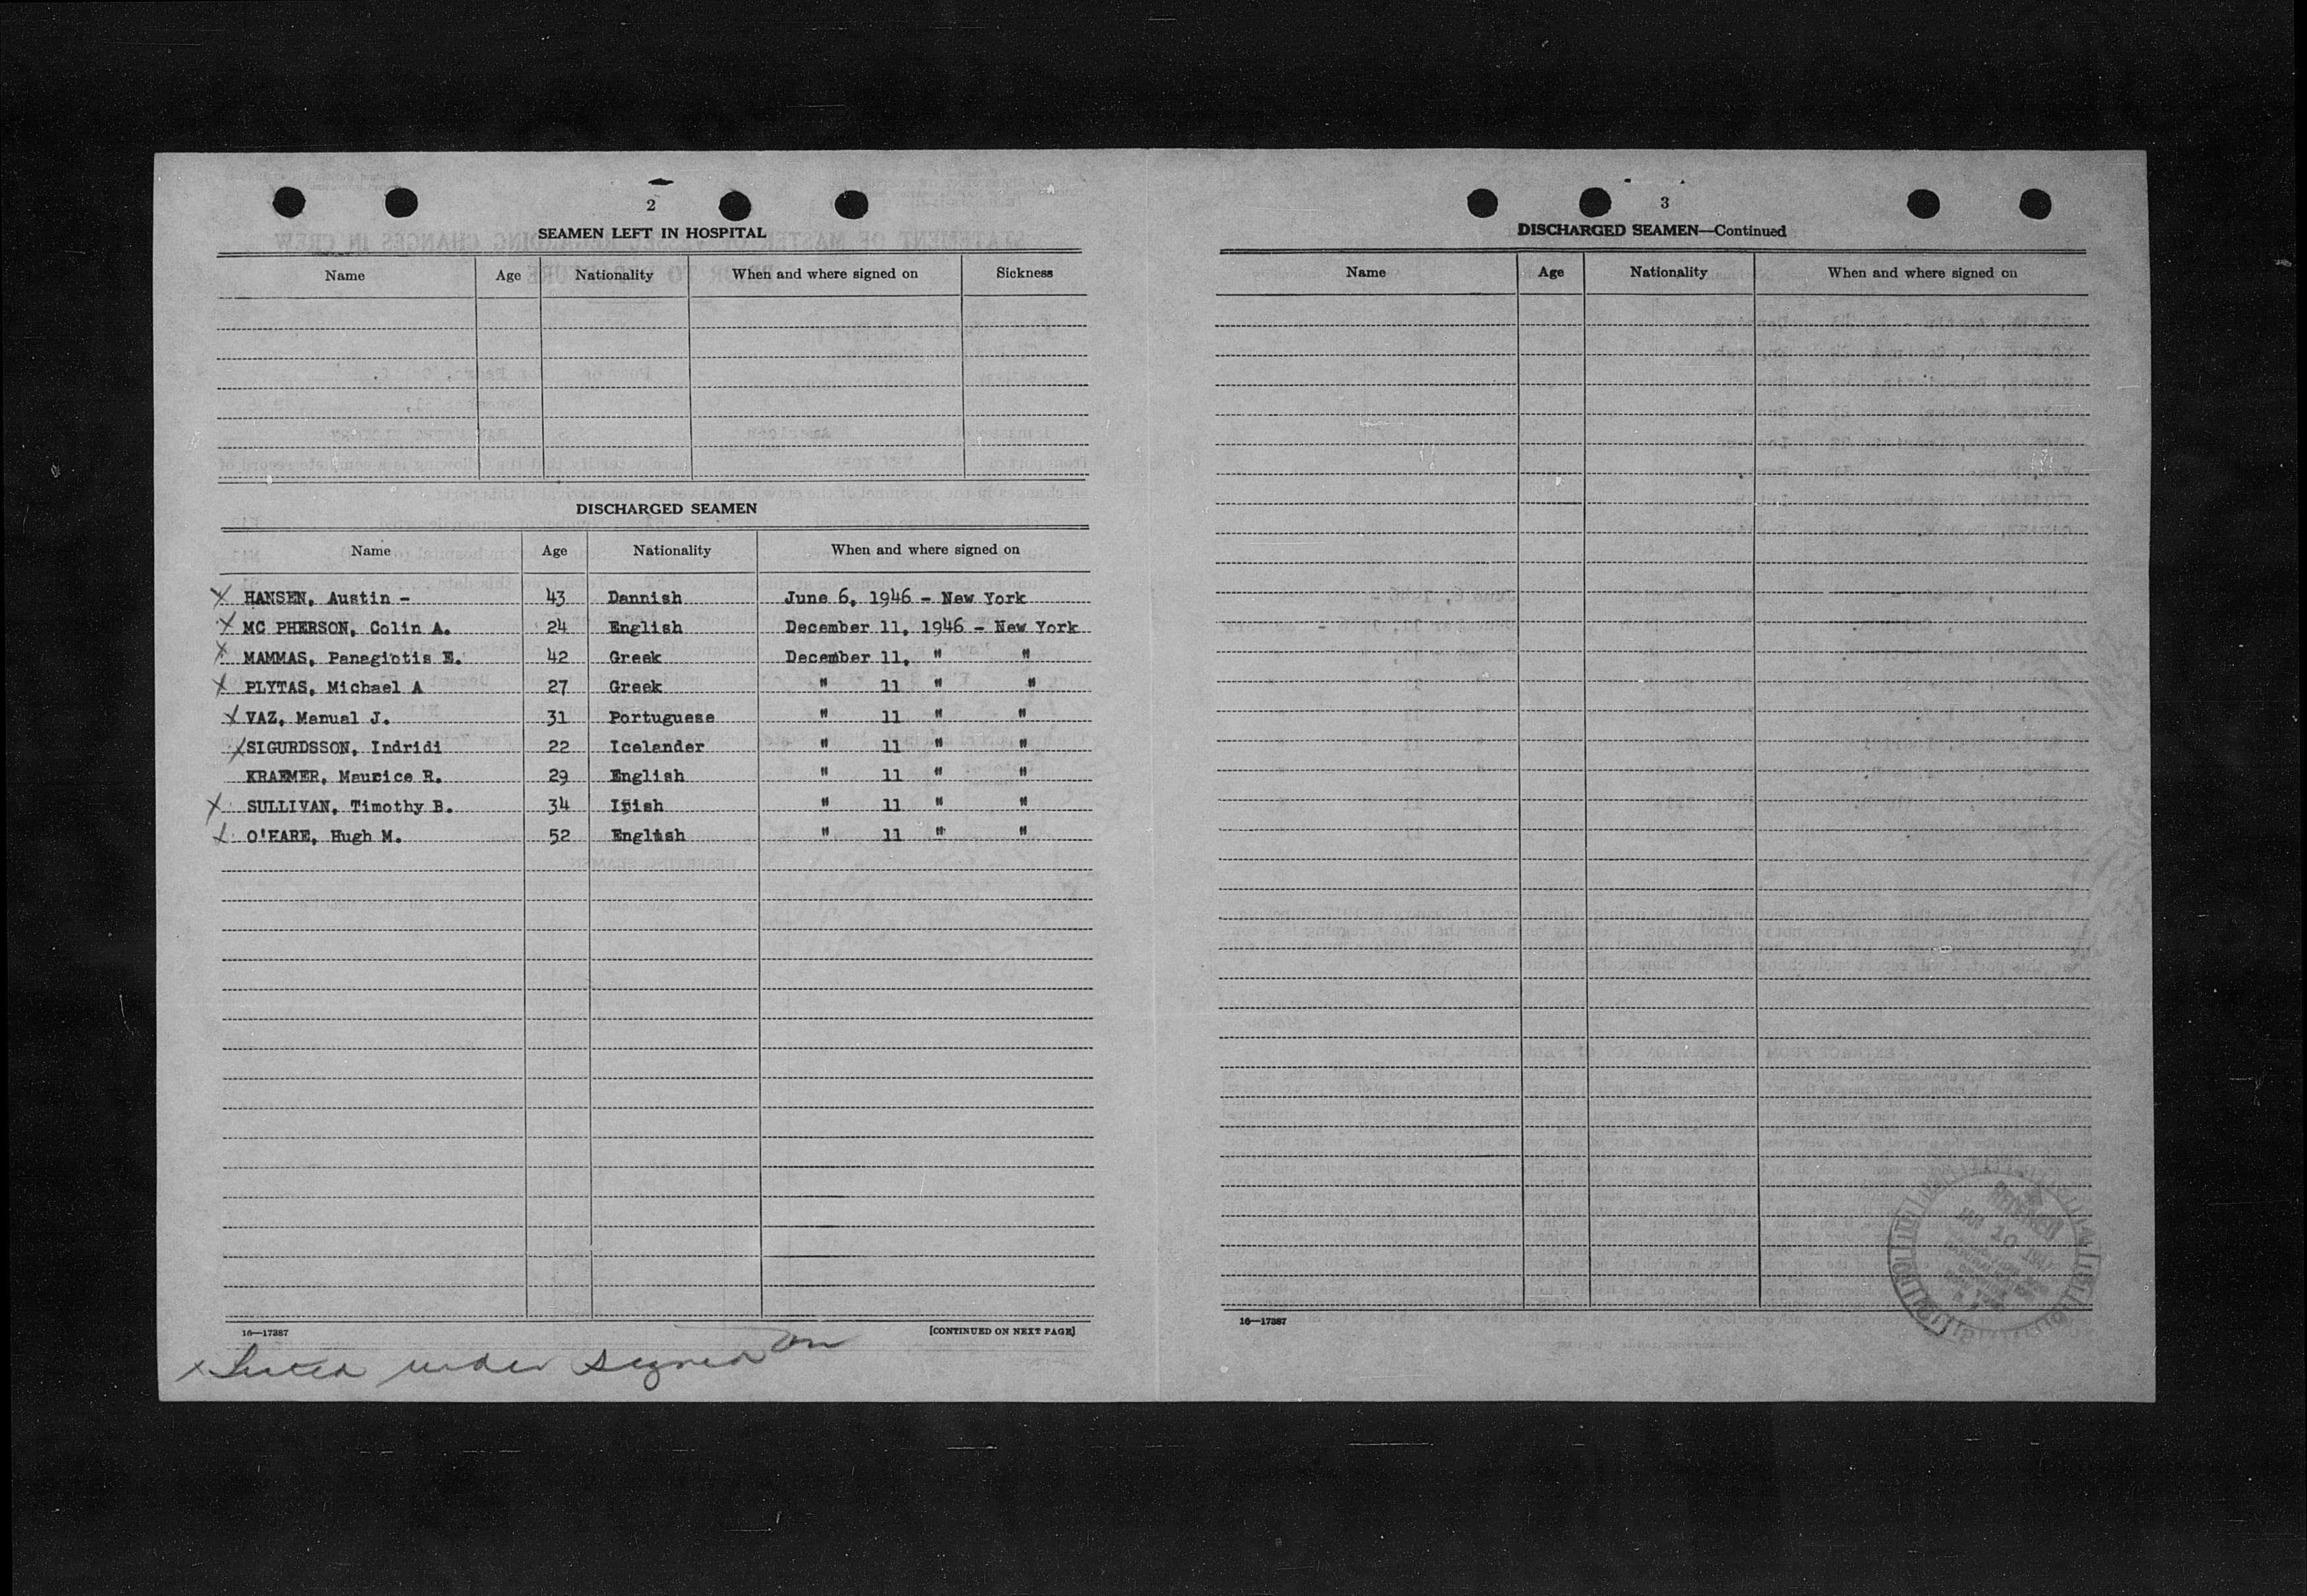 2
SEAMEN LEFT IN HOSPITAL
Name Age Nationality When and where signed on Sickness
DISCHARGED SEAMEN
Name Age Nationality When and where signed on
X HANSEN, Austin - 43 Dannish June 6, 1946 - New York
X MC PHERSON, Colin A. 24 English December 11, 1946 - New York
X MAMMAS, Panagiotis E. 42 Greek December 11, " "
X PLYTAS, Michael A 27 Greek " 11 " "
X VAZ, Manual J. 31 Portuguese " 11 " "
X SIGURDSSON, Indridi 22 Icelander " 11 " "
KRAEMER, Maurice R. 29 English " 11 " "
X SULLIVAN, Timothy B. 34 Irish " 11 " "
X O'HARE, Hugh M. 52 English " 11 " "
16—17387 [CONTINUED ON NEXT PAGE]
x Listed under signed on
3
DISCHARGED SEAMEN—Continued
Name Age Nationality When and where signed on
16—17387